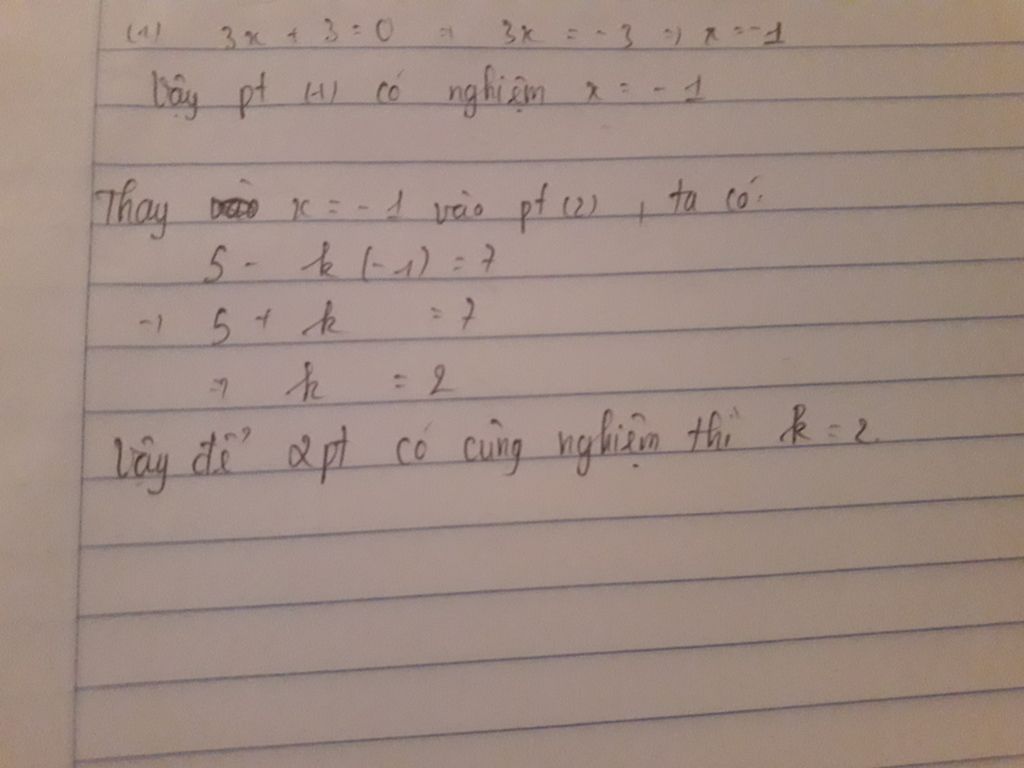 (1) 3x + 3 = 0 => 3x = -3 => x = -1
Vậy pt (1) có nghiệm x = -1
Thay x = -1 vào pt (2), ta có:
5 - k (-1) = 7
=> 5 + k = 7
=> k = 2
Vậy để 2 pt có cùng nghiệm thì k = 2.